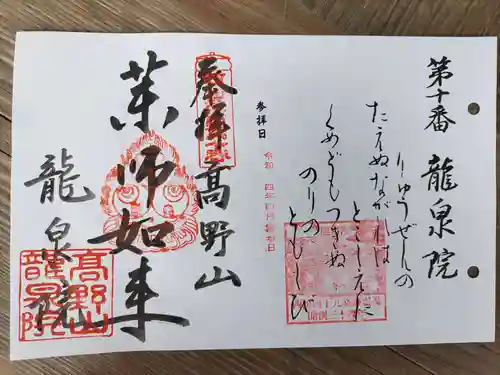 第十番 龍泉院
りゅうぜんの
たえぬながれは
とこしえに
くめどもつきぬ
のりの
ともしび
参拝日
令和 四年
奉拝 高野山
薬師如来
龍泉院
高野山
龍泉院